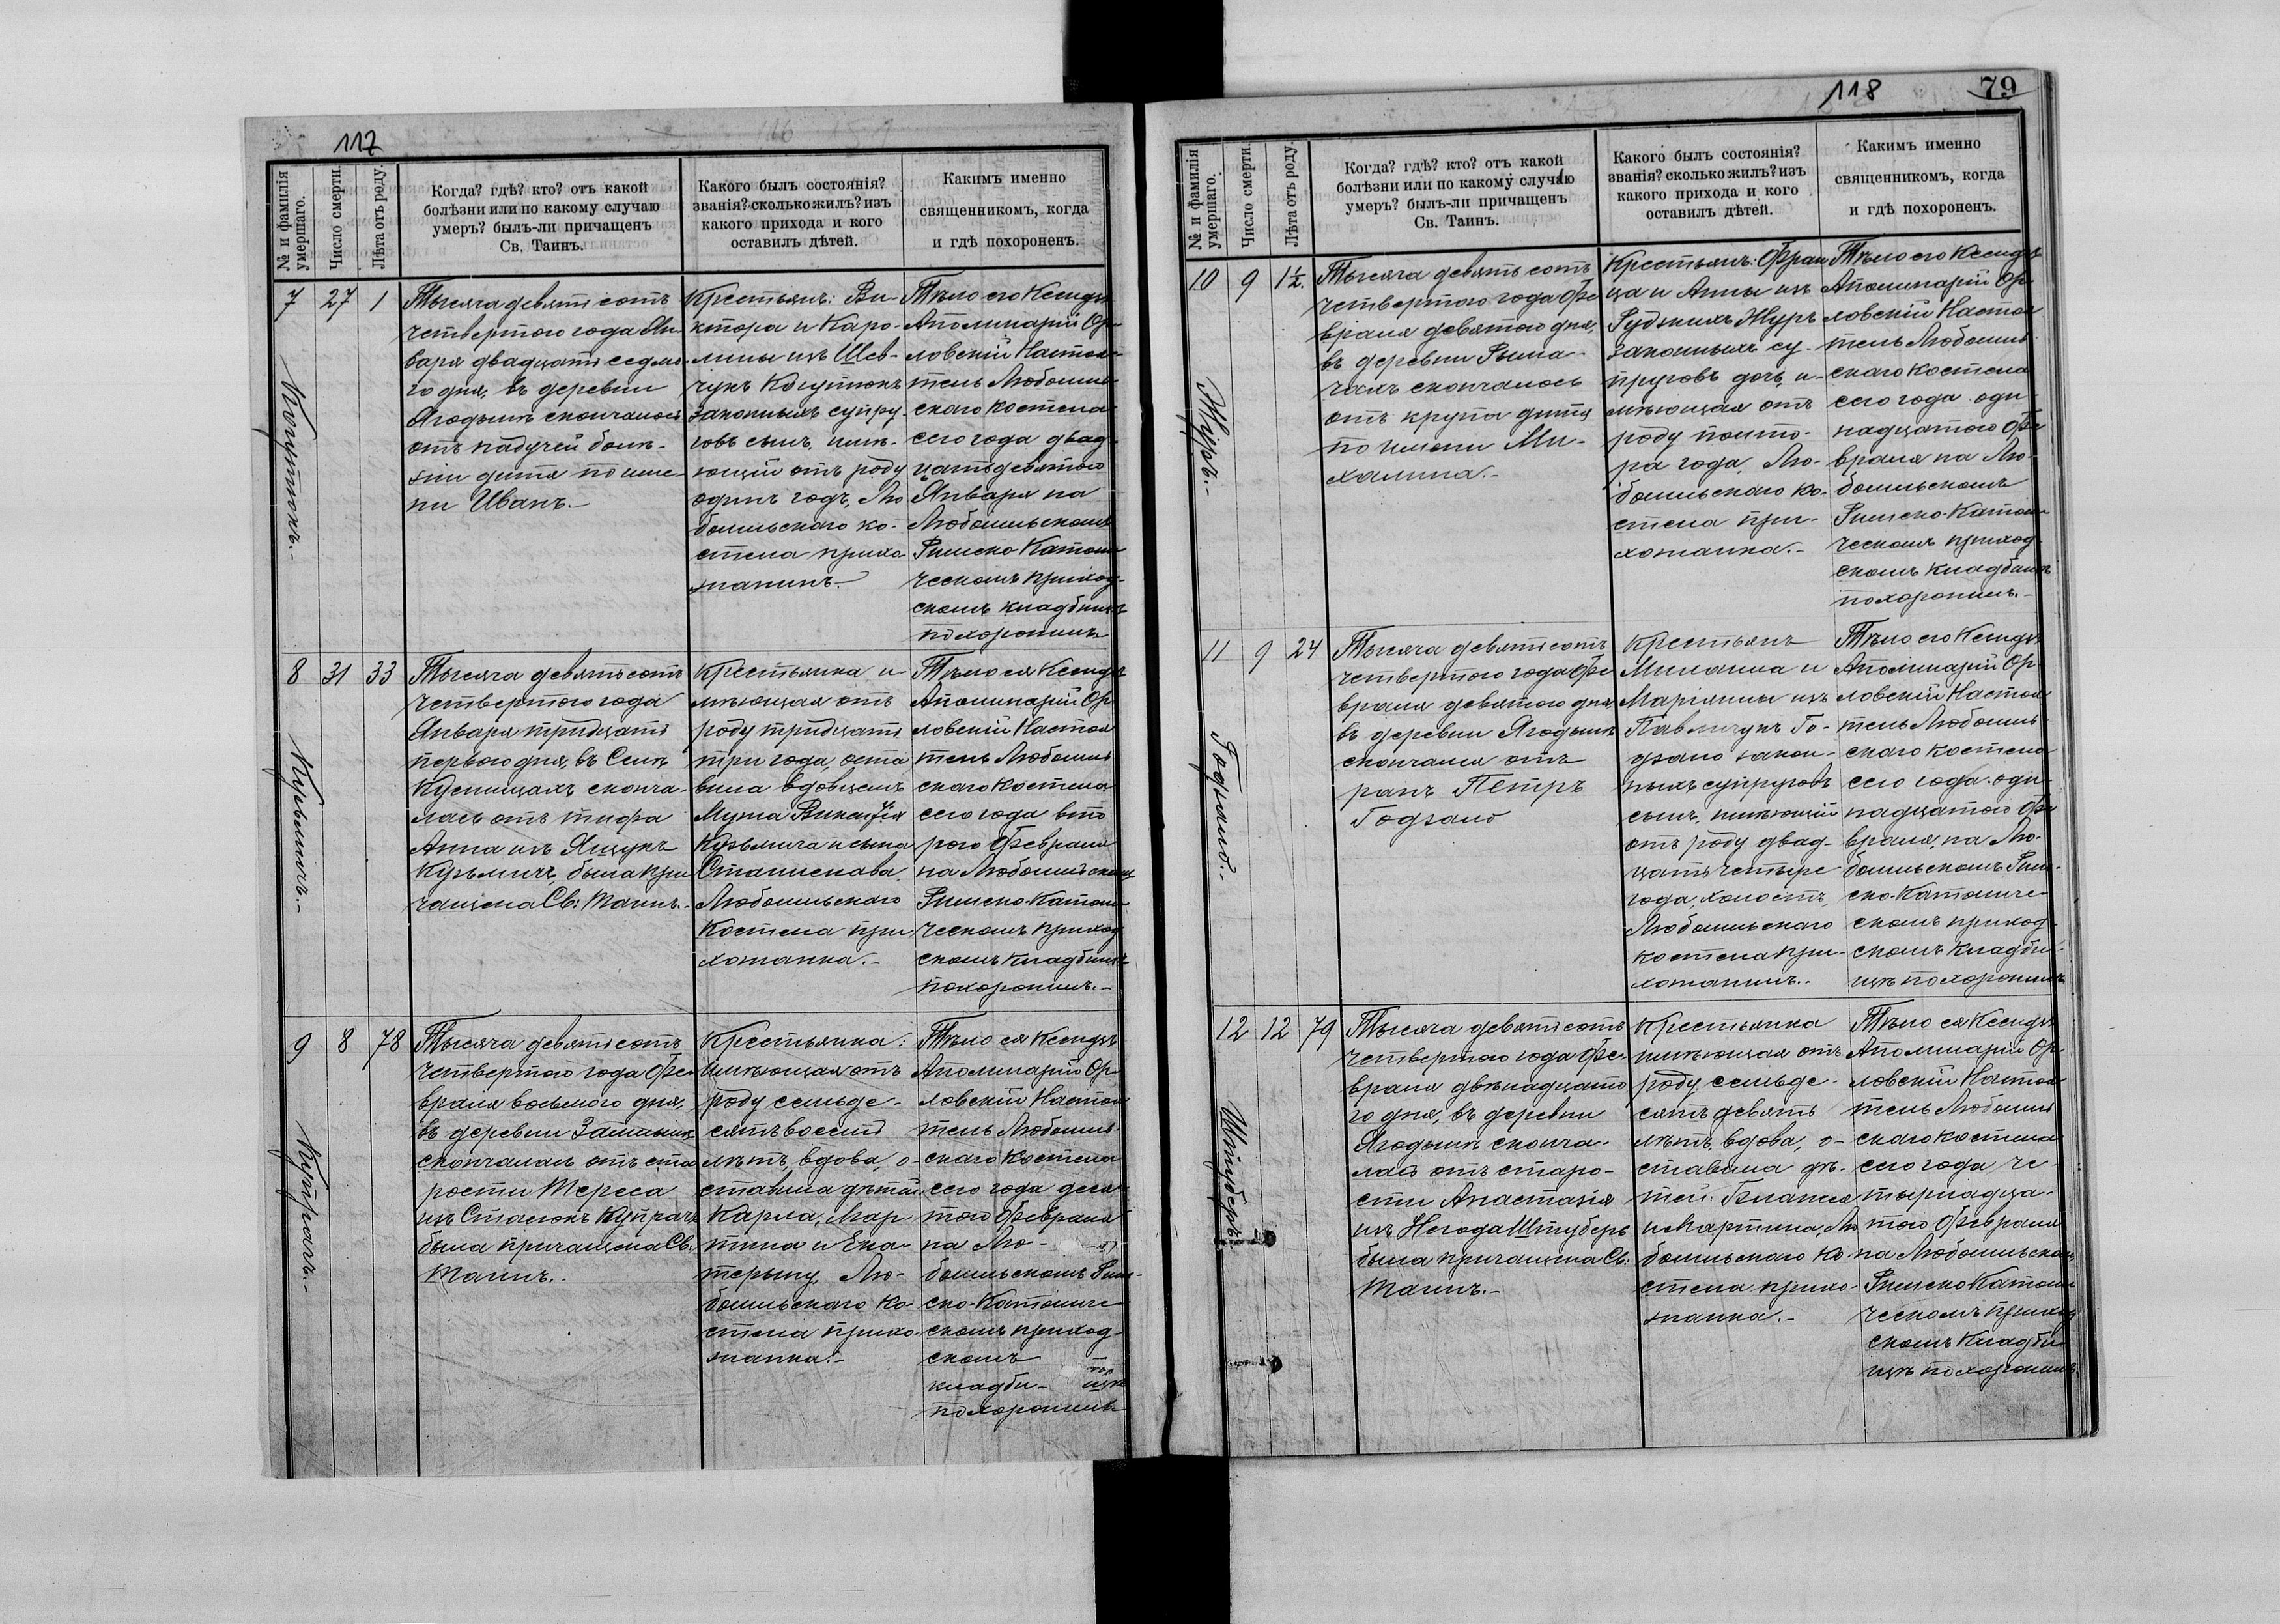 117
№ и фамилія умершаго.
Число смерти.
Лѣта отъ роду.
Когда? гдѣ? кто? отъ какой
болѣзни или по какому случаю
умеръ? былъ-ли причащенъ
Св. Таинъ.
Какого былъ состоянія?
званія? сколько жилъ? изъ
какого прихода и кого
оставилъ дѣтей.
Какимъ именно
священникомъ, когда
и гдѣ похороненъ.
7
Когутюкъ.-
27
1
Тысяча девятьсотъ
четвертого года Ян-
варя двадцать седмо
го дня, въ деревни
Ягодынѣ скончалось
отъ падучей болѣ-
зни дитя по име-
ни Иванъ.-
Крестьянъ: Ви-
ктора и Каро-
лины изъ Шев-
чукъ Когутюкъ
законныхъ супру-
говъ сынъ, имѣ-
ющій отъ роду
одинъ годъ, Лю
бомльского ко-
стела прихо-
жанинъ.-
Тѣло его Ксендзъ
Аполинарій Ор-
ловскій Настоя-
тель Любомль-
скаго костела
сего года двад-
цать девятого
Января на
Любомльскомъ
Римско-Катол
ческомъ приход-
скомъ кладбищѣ
похоронилъ
8
Кузьмичъ.-
31
33
Тысяча девятьсотъ
четвертого года
Января тридцать
первого дня, въ Селѣ
Куснищахъ сконча-
лась отъ тифа
Анна изъ Ящукъ
Кузьмичъ, была при
чащена Св: Таинъ.-
Крестьянка и-
мѣющая отъ
роду тридцать
три года, оста
вила вдовцемъ
Мужа Викентія
Кузьмича и сына
Станислава
Любомльского
Костела при
хожанка.-
Тѣло ея Ксендзъ
Аполинарій Ор
ловскій Настоя
тель Любомль
скаго Костела
сего года вто
рого Февраля
на Любомльскомъ
Римско-Катол
ческомъ приход
скомъ кладбищѣ
похоронилъ.-
9
Купрачъ.-
8
78
Тысяча девятьсотъ
четвертого года Фе-
враля восьмого дня,
въ деревни Замлынѣ
скончалась отъ ста
рости Тереса
изъ Стасюкъ Купрачъ
была причащена Св:
Таинъ.-
Крестьянка:
имѣющая отъ
роду семьде-
сятъ восемь
лѣтъ, вдова, о-
ставила дѣтей
Карла, Мар-
тина и Ека-
терыну, Лю-
бомльского Ко-
стела прихо-
жанка.-
Тѣло ея Ксендзъ
Аполинарій Ор
ловскій Настоя
тель Любомль-
скаго Костела
сего года деся
того Февраля
на Лю-
бомльскомъ Рим-
ско-Католиче
скомъ приход-
скомъ
кладби- щѣ
похоронилъ
118
79
№ и фамилія умершаго.
Число смерти.
Лѣта отъ роду.
Когда? гдѣ? кто? отъ какой
болѣзни или по какому случаю
умеръ? былъ-ли причащенъ
Св. Таинъ.
Какого былъ состоянія?
званія? сколько жилъ? изъ
какого прихода и кого
оставилъ дѣтей.
Какимъ именно
священникомъ, когда
и гдѣ похороненъ.
10
Журъ.-
9
1½
Тысяча девятьсотъ
четвертого года Фе
враля девятого дня,
въ деревни Рыма-
чахъ скончалось
отъ крупа дитя
по имени Ми-
халина.-
Крестьянъ: Фран
ца и Анны изъ
Рудзкихъ Журъ
законныхъ су-
пруговъ дочь, и-
мѣющая отъ
роду полто-
ра года, Лю-
бомльского ко-
стела при-
хожанка.-
Тѣло его Ксендзъ
Аполинарій Ор-
ловскій Настоя
тель Любомль
скаго костела
сего года оди
надцатого Фе
враля на Лю-
бомльскомъ
Римско-Катол
ческомъ приход-
скомъ кладбищѣ
похоронилъ.-
11
Годзало.-
9
24
Тысяча девятьсотъ
четвертого года Фе
враля девятого дня
въ деревни Ягодынѣ
скончался отъ
ранъ Петръ
Годзало
Крестьянъ
Михаила и
Маріянны изъ
Павличукъ Го-
дзало закон-
ныхъ супруговъ
сынъ, имѣющій
отъ роду двад-
цать четыре
года, холостъ,
Любомльского
костела при-
хожанинъ.-
Тѣло его Ксендзъ
Аполинарій Ор
ловскій Настоя
тель Любомль-
скаго костела
сего года оди
надцатого Фе
враля, на Лю-
бомльскомъ Рим-
ско-Католиче-
скомъ приход-
скомъ кладби-
щѣ похоронилъ
12
Штуберъ.
12
79
Тысяча девятьсотъ
четвертого года Фе-
враля двѣнадцато
го дня, въ деревни
Ягодынѣ сконча-
лась отъ старо-
сти Анастазія
изъ Негода Штуберъ
была причащена Св:
Таинъ.-
Крестьянка
имѣющая отъ
роду семьде-
сятъ девять
лѣтъ, вдова, о-
ставила дѣ-
тей:
и Мартина, Лю
бомльского Ко-
стела прихо-
жанка.-
Тѣло ея Ксендзъ
Аполинарій Ор
ловскій Настоя
тель Любомль
скаго костела
сего года че-
тырнадца-
того Февраля
на Любомльскомъ
Римско Катол
ческомъ приход
скомъ Кладби-
щѣ похоронилъ.